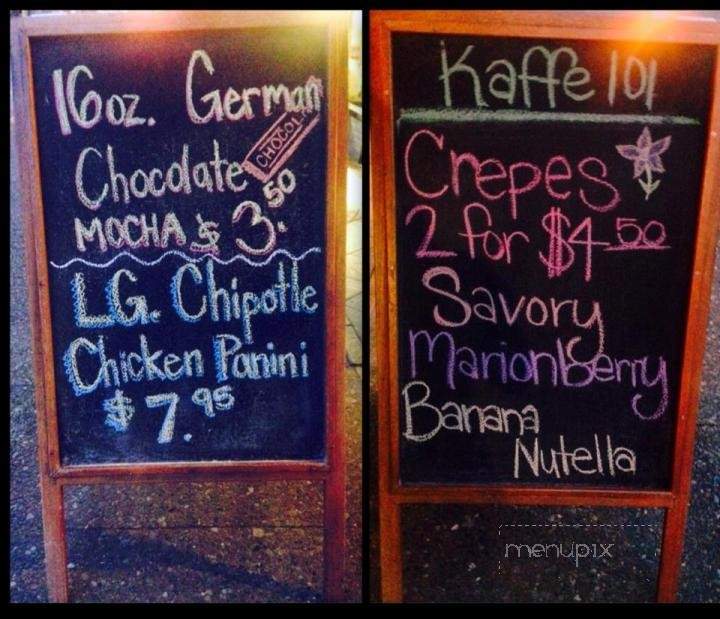 16oz. German
CHOCOL
Chocolate
MOCHA $3.50
LG. Chipotle
Chicken Panini
$7.95
Kaffe 101
Crepes
2 for $4.50
Savory
Marionberry
Banana
Nutella
menupix